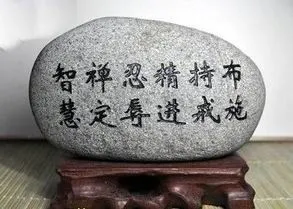 布施
持戒
精進
忍辱
禅定
智慧